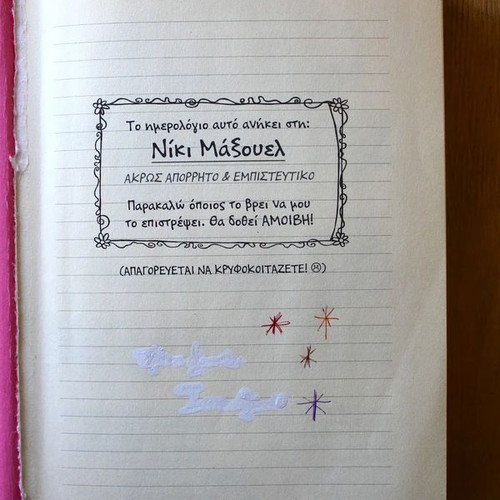 Το ημερολόγιο αυτό ανήκει στη:
Νίκι Μάξουελ
ΑΚΡΩΣ ΑΠΟΡΡΗΤΟ & ΕΜΠΙΣΤΕΥΤΙΚΟ
Παρακαλώ όποιος το βρει να μου
το επιστρέψει. Θα δοθεί ΑΜΟΙΒΗ!
(ΑΠΑΓΟΡΕΥΕΤΑΙ ΝΑ ΚΡΥΦΟΚΟΙΤΑΖΕΤΕ! ☹)